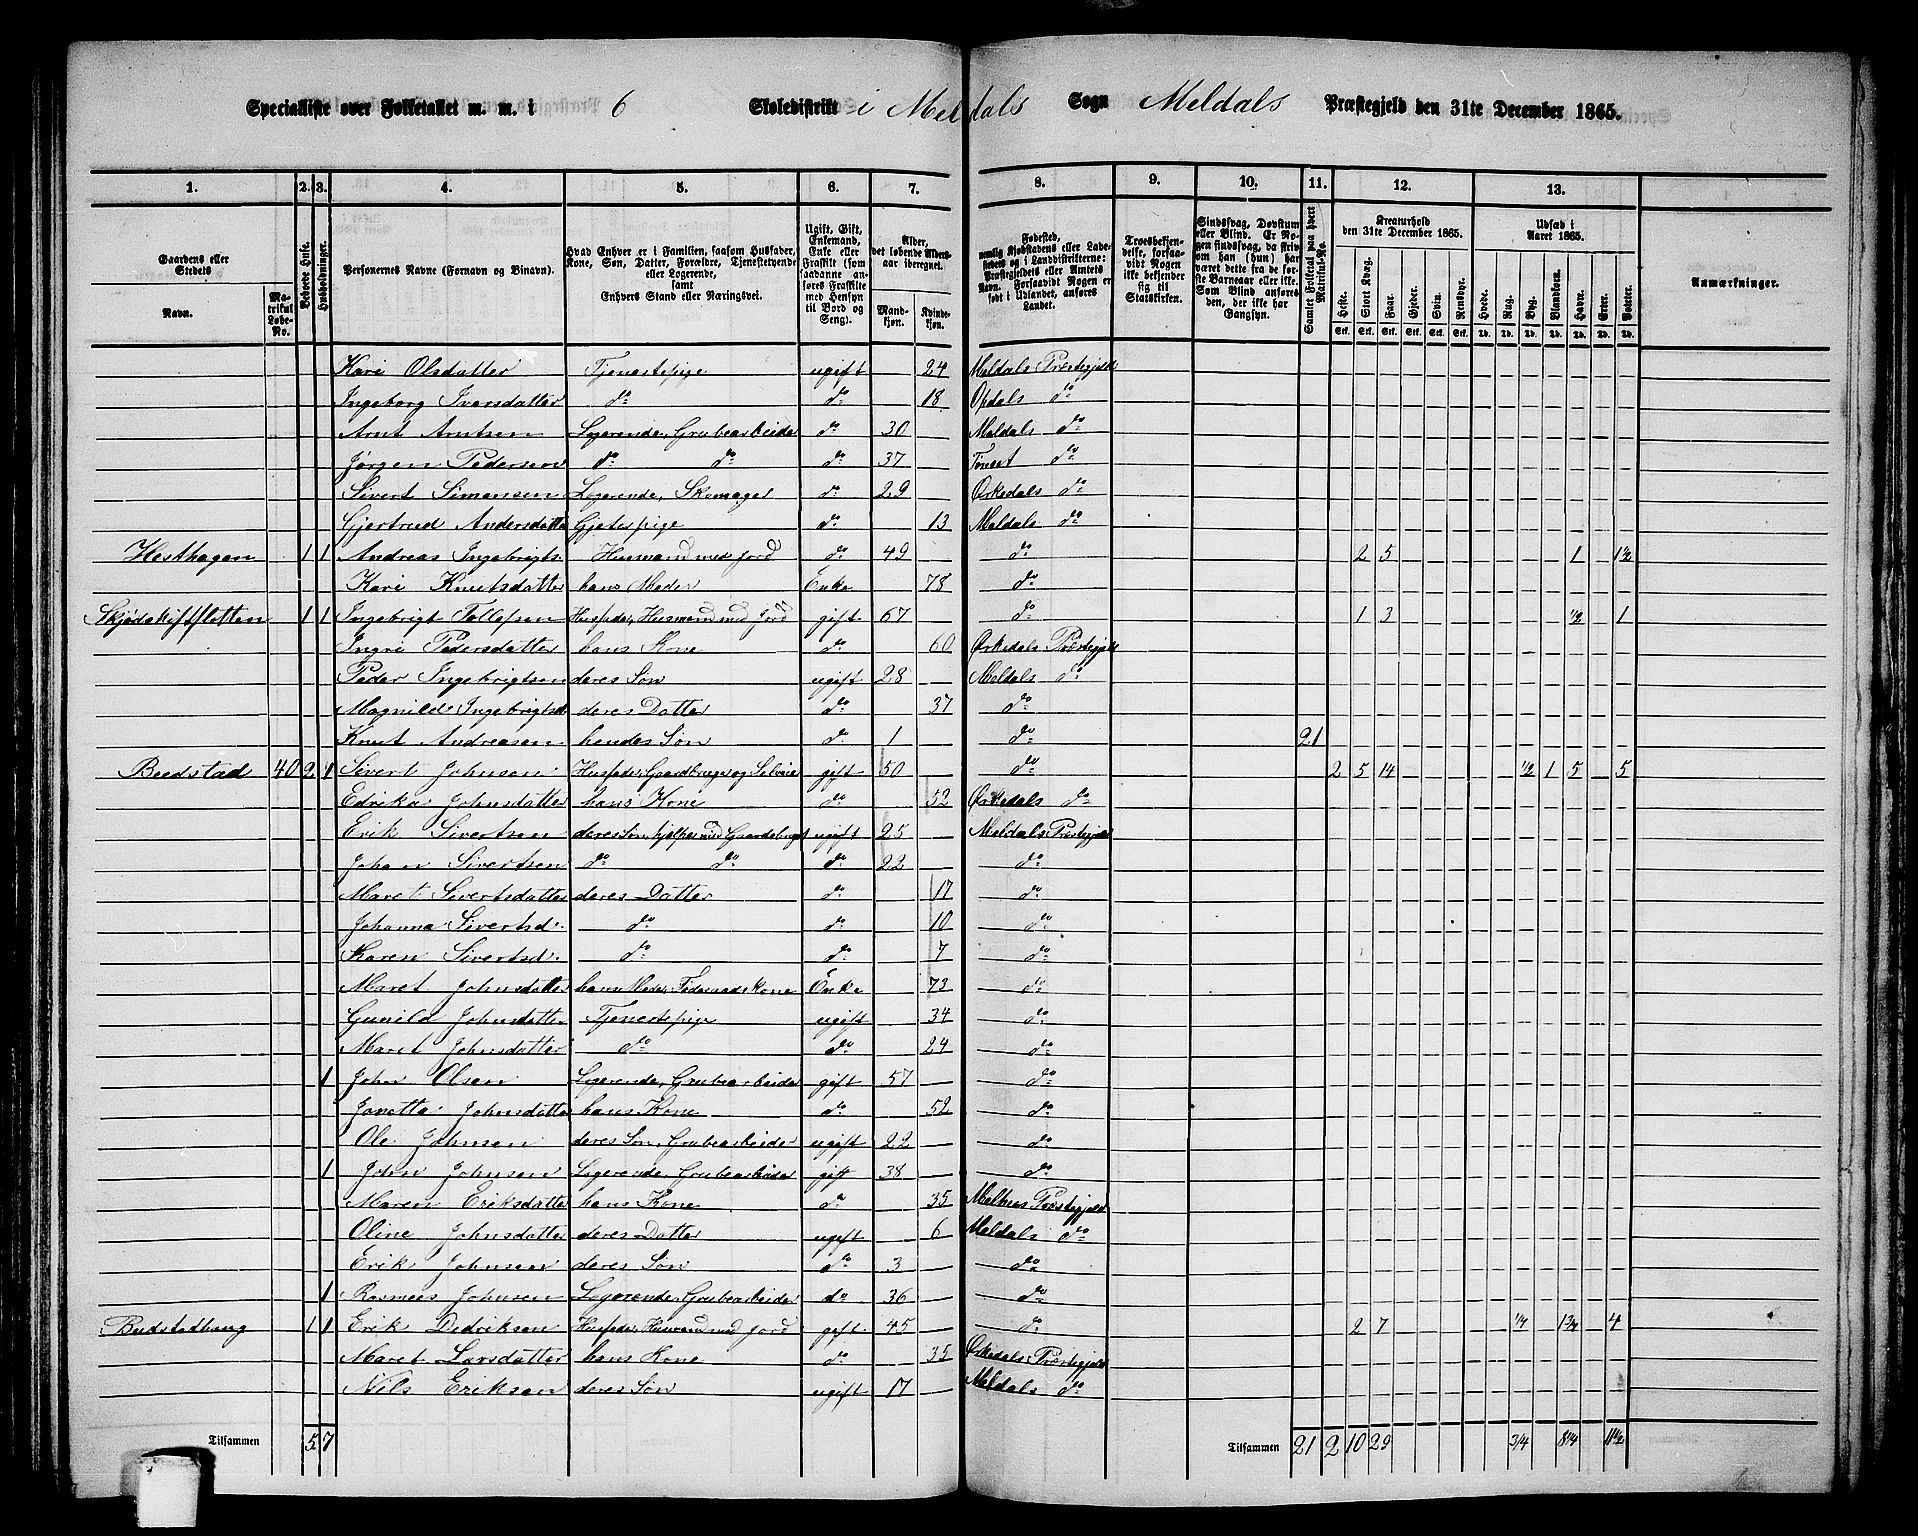 Specialliste over Folketallet m. m. i 6 Skoledistrikt i Meldals Sogn Meldals Præstegjeld den 31te December 1865.
1. 2. 3. 4. 5. 6. 7. 8. 9. 10. 11. 12. 13.
Gaardens eller Stedets Navn. Matrikul Løbe-No. Beboede Huse. Husholdninger. Personernes Navne (Fornavn og Binavn). Hvad Enhver er i Familien, saasom Husfader, Kone, Søn, Datter, Forældre, Tjenestetyende eller Logerende, samt Enhvers Stand eller Næringsvei. Ugift, Gift, Enkemand, Enke eller Fraskilt (som saadanne anføres Fraskilte med Hensyn til Bord og Seng). Alder, det løbende Aldersaar iberegnet. Mandkjøn. Kvindekjøn. Fødested, nemlig Kjøbstadens eller Ladestedets og i Landdistrikterne: Præstegjeldets eller Amtets Navn. Forsaavidt Nogen er født i Udlandet, anføres Landet. Troesbekjendelse, forsaavidt Nogen ikke bekjender sig til Statskirken. Sindssvag, Døvstum eller Blind. Er Nogen sindssvag, da skriv om han (hun) har været dette fra de første Barneaar eller ikke. Som Blind ansøres den, der ikke har Gangsyn. Samlet Folketal paa hvert Matrikul-No. Kreaturhold den 31te December 1865. Heste. Stort Kvæg. Faar. Gjeder. Svin. Rensdyr. Udsæd i Aaret 1865. Hvede. Rug. Byg. Blandkorn. Havre. Erter. Poteter. Anmærkninger.
Kari Olsdatter Tjenestepige ugift 24 Meldals Præstegjeld
Ingeborg Iversdatter do do 18 Opdals do
Arnt Arntsen Logerende, Grubearbeider do 30 Meldals do
Jørgen Pedersen do do do 37 Tønset do
Sivert Simonsen Logerende, Skomager do 29 Ørkedals do
Gjertrud Andersdatter Gjetepige do 13 Meldals do
Hesthagen 1 1 Andreas Ingebrigts. Husmand med Jord do 49 do 2 5 1 1½
Kari Knutsdatter hans Moder Enke 78 do
Skjødskiftsletten 1 1 Ingebrigt Tollefsen Husfader, Husmand med Jord gift 67 do 1 3 ½ 1
Ingri Pedersdatter hans Kone do 60 Ørkedals Præstegjeld
Peder Ingebrigtsen deres Søn ugift 28 Meldals do
Magnild Ingebrigtsd deres Datter do 37 do
Knut Andreasen hendes Søn do 1 do 21
Budstad 40 2 1 Sivert Johnsen Husfader, Gaardbruger og Selveier gift 50 do 2 5 14 ½ 1 5 5
Edrika Johnsdatter hans Kone do 52 Ørkedals do
Erik Sivertsen deres Søn, hjælper med Gaardsbruget ugift 25 Meldals Præstegjeld
Johan Sivertsen do do do 22 do
Maret Sivertsdatter deres Datter do 17 do
Johanna Sivertsd. do do 10 do
Karen Sivertsd. do do 7 do
Maret Johnsdatter hans Moder, Føderaadskone Enke 73 do
Gunild Johnsdatter Tjenestepige ugift 34 do
Maret Johnsdatter do do 24 do
1 John Olsen Logerende, Grubearbeider gift 57 do
Janetta Johnsdatter hans Kone do 52 do
Ole Johnsen deres Søn, Grubearbeider ugift 22 do
1 John Johnsen Logerende, Grubearbeider gift 38 do
Maren Eriksdatter hans Kone do 35 Melhus Præstegjeld
Oline Johnsdatter deres Datter ugift 6 Meldals do
Erik Johnsen deres Søn do 3 do
1 Rasmus Johnsen Logerende, Grubearbeider do 36 do
Budstadhaug 1 1 Erik Dedriksen Husfader, Husmand med Jord gift 45 do 2 7 ¼ 1¾ 4
Maret Larsdatter hans Kone do 35 Ørkedals Præstegjeld
Nils Eriksen deres Søn ugift 17 Meldals do
Tilsammen 5 7 Tilsammen 21 2 10 29 3/4 8¼ 11½